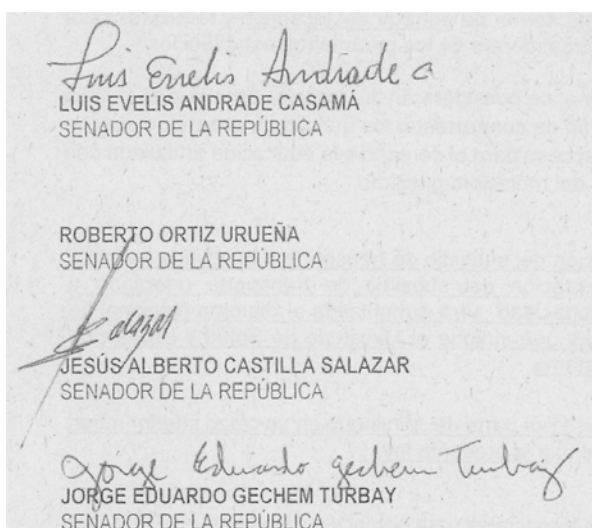 Luis Evelis Andrade C
LUIS EVELIS ANDRADE CASAMÁ
SENADOR DE LA REPÚBLICA
ROBERTO ORTIZ URUEÑA
SENADOR DE LA REPÚBLICA
Salazar
JESÚS ALBERTO CASTILLA SALAZAR
SENADOR DE LA REPÚBLICA
Jorge Eduardo Gechem Turbay
JORGE EDUARDO GECHEM TURBAY
SENADOR DE LA REPÚBLICA